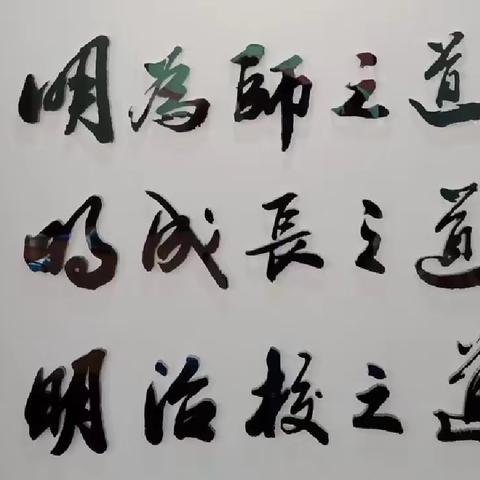 明為師之道
明成長之道
明治校之道